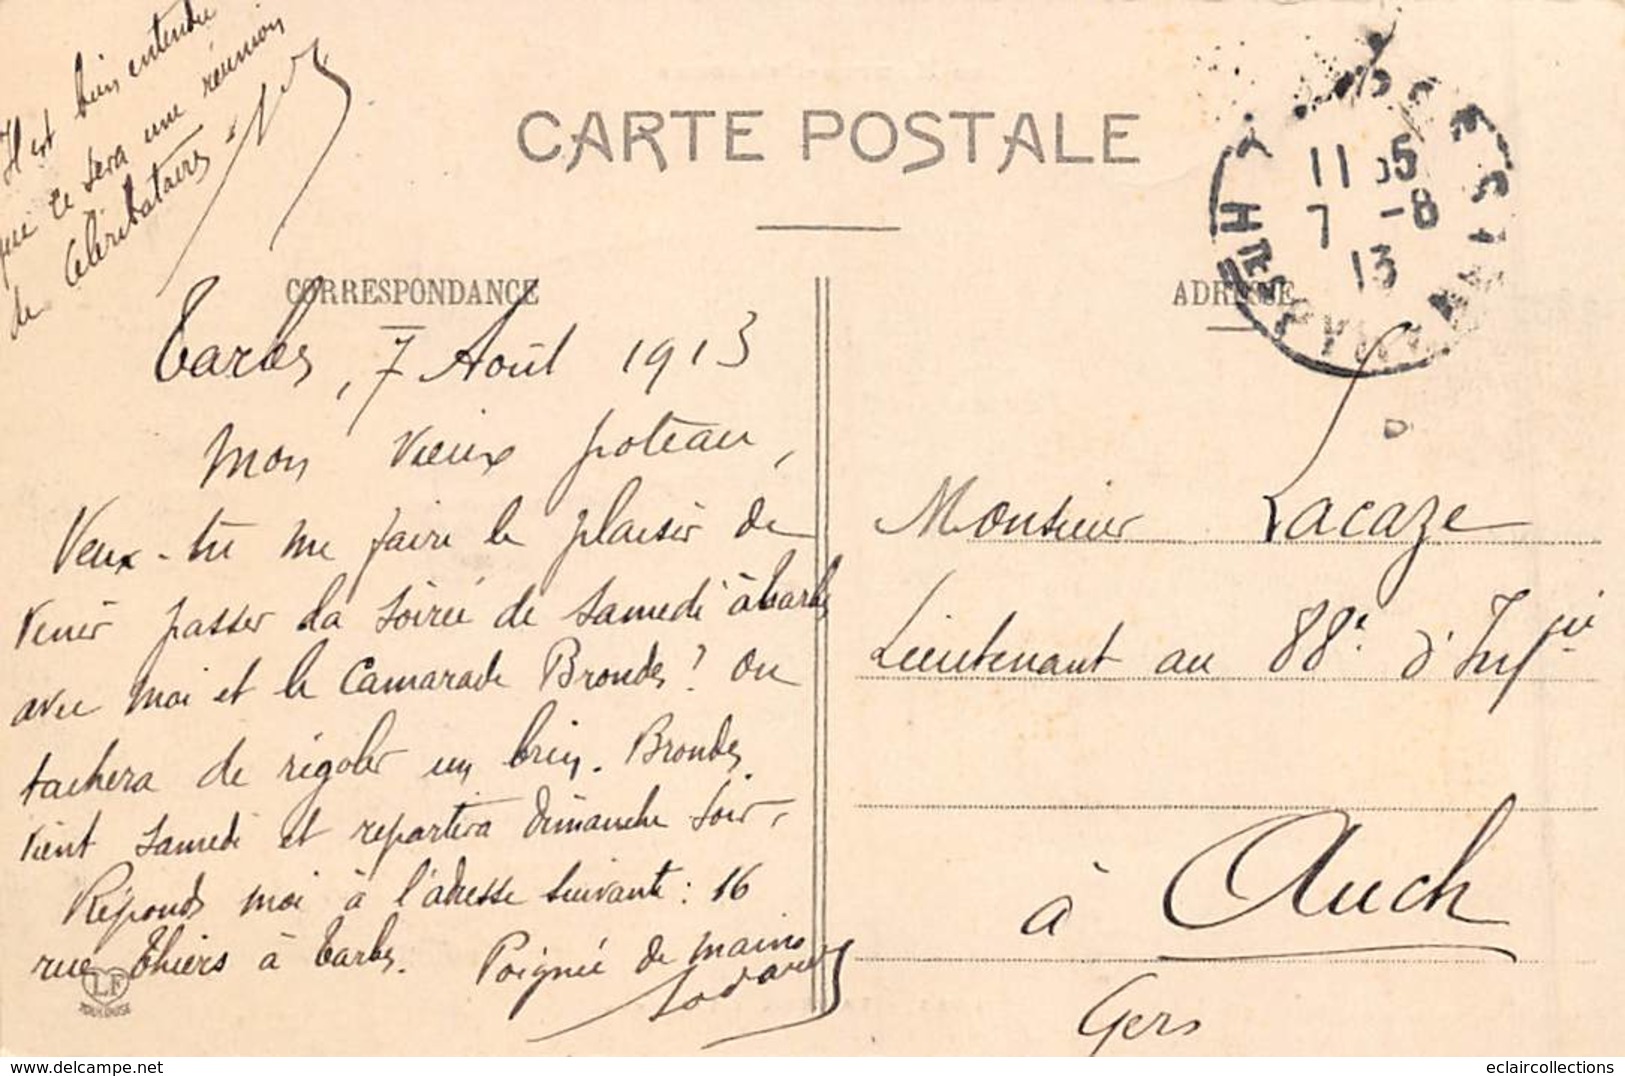 Il est bien entendu
que ce sera une réunion
de célibataires
CARTE POSTALE
CORRESPONDANCE
Tarbes, 7 Août 1913
Mon vieux poteau,
Veux-tu me faire le plaisir de
venir passer la soirée de samedi à Tarbes
avec moi et le camarade Brondes ? On
tachera de rigoler un brin. Brondes
vient samedi et repartira dimanche soir.
Réponds moi à l'adresse suivante : 16
rue Thiers à Tarbes. Poignée de mains
LF
TOULOUSE
ADRESSE
11 35
7 -8
13
Monsieur Lacaze
Lieutenant au 88e d'Infie
à Auch
Gers
eclaircollections